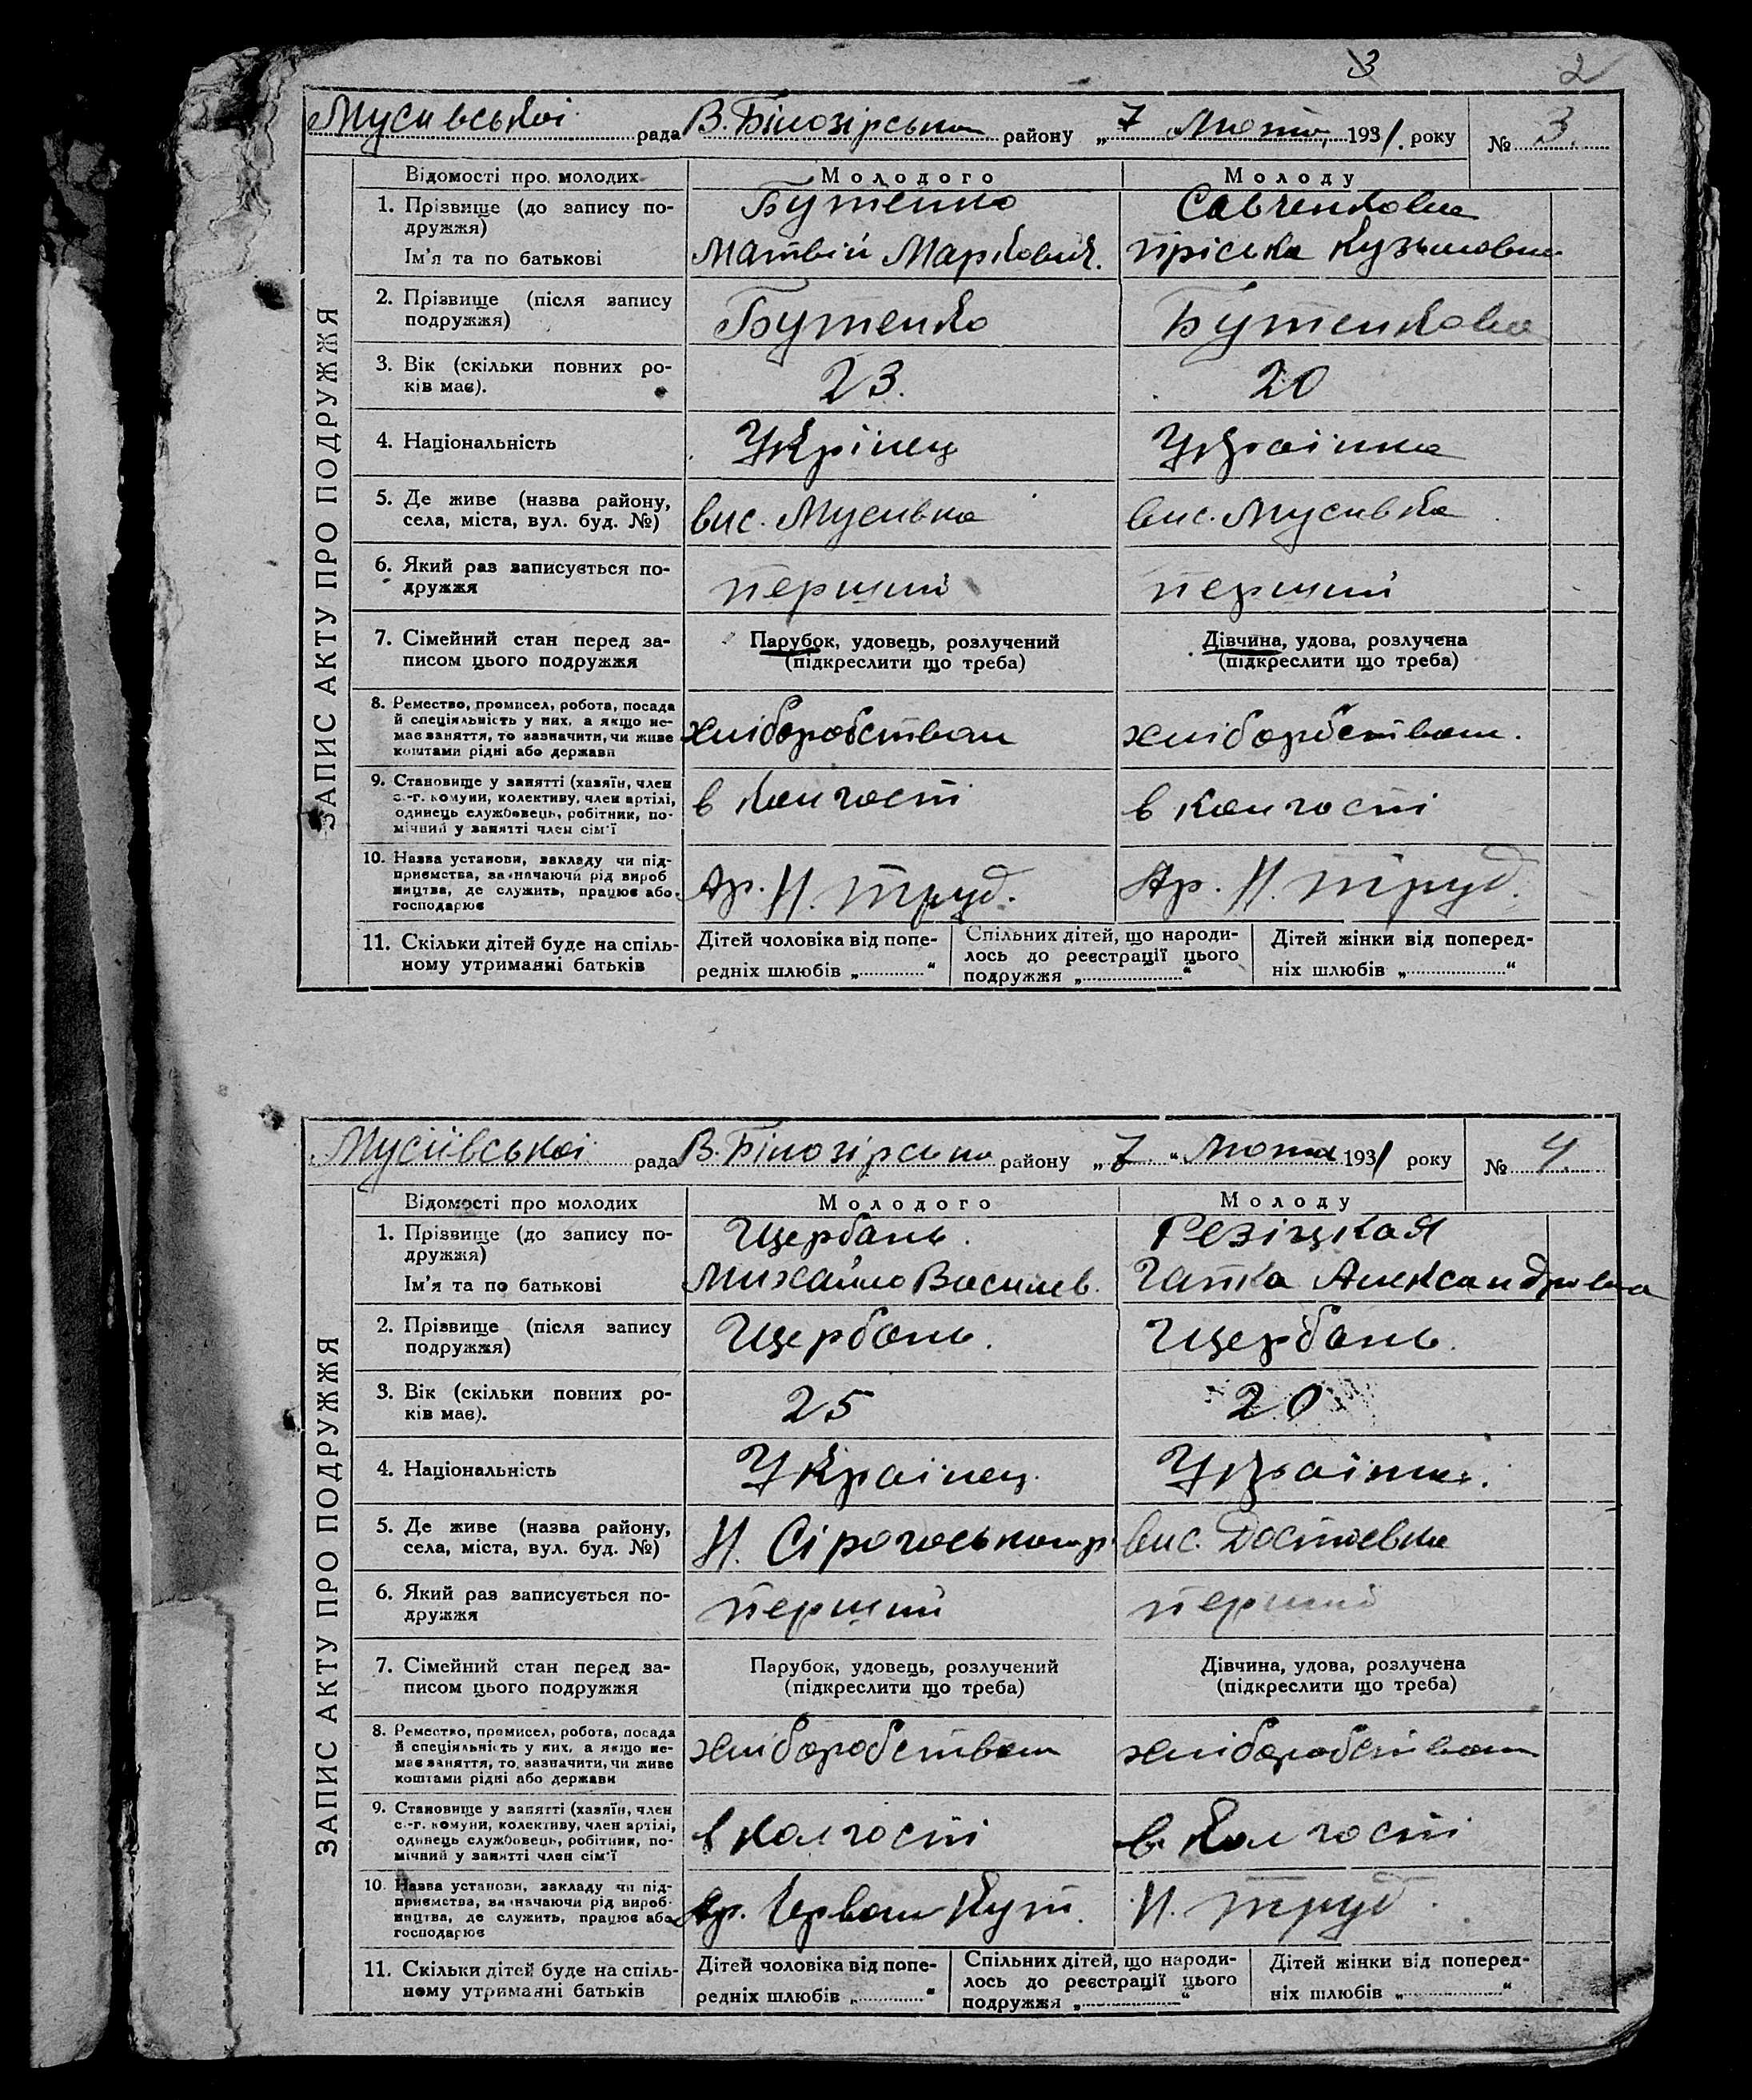 3 2
Мусивської рада В. Білозірська району „7 Лютого 1931. року № 3.
ЗАПИС АКТУ ПРО ПОДРУЖЖЯ
Відомості про молодих Молодого Молоду
1. Прізвище (до запису по- Бутенко Савченкова
дружжя)
Ім'я та по батькові Матвій Маркович. Пріська Кузьмовна
2. Прізвище (після запису Бутенко Бутенкова
подружжя)
3. Вік (скільки повних ро- 23. 20
ків має).
4. Національність Укрінец Украінка
5. Де живе (назва району, вис. Мусивка вис. Мусивка
села, міста, вул. буд. №)
6. Який раз записується по- перший перший
дружжя
7. Сімейний стан перед за- Парубок, удовець, розлучений Дівчина, удова, розлучена
писом цього подружжя (підкреслити що треба) (підкреслити що треба)
8. Ремество, промисел, робота, посада
й спеціяльність у них, а якщо не- хліборобством хліборобством.
має заняття, то зазначити, чи живе
коштами рідні або держави
9. Становище у занятті (хазяїн, член
с.-г. комуни, колективу, член артілі, в колгоспі в колгоспі
одинець службовець, робітник, по-
мічний у занятті член сім'ї
10. Назва установи, закладу чи під-
приємства, зазначаючи рід вироб Ар. Н. труд. Ар. Н. труд.
ництва, де служить, працює або
господарює
11. Скільки дітей буде на спіль- Дітей чоловіка від попе- Спільних дітей, що народи- Дітей жінки від поперед-
ному утриманні батьків редніх шлюбів „ “ лось до реєстрації цього ніх шлюбів „ “
подружжя „ “
Мусіївської рада В. Білозірська району „7. “ Лютого 1931 року № 4.
ЗАПИС АКТУ ПРО ПОДРУЖЖЯ
Відомості про молодих Молодого Молоду
1. Прізвище (до запису по- Щербань. Резіцкая
дружжя)
Ім'я та по батькові Михайло Василів. Гапка Александровна
2. Прізвище (після запису Щербань. Щербань.
подружжя)
3. Вік (скільки повних ро- 25 20
ків має).
4. Національність Украінец. Украінка.
5. Де живе (назва району, Н. Сірогоського р. вис.
села, міста, вул. буд. №)
6. Який раз записується по- перший перший
дружжя
7. Сімейний стан перед за- Парубок, удовець, розлучений Дівчина, удова, розлучена
писом цього подружжя (підкреслити що треба) (підкреслити що треба)
8. Ремество, промисел, робота, посада
й спеціяльність у них, а якщо не- хліборобством хліборобством
має заняття, то зазначити, чи живе
коштами рідні або держави
9. Становище у занятті (хазяїн, член
с.-г. комуни, колективу, член артілі, в колгоспі в колгоспі
одинець службовець, робітник, по-
мічний у занятті член сім'ї
10. Назва установи, закладу чи під-
приємства, зазначаючи рід вироб- Ар. Червон Кут. Н. труд.
ництва, де служить, працює або
господарює
11. Скільки дітей буде на спіль- Дітей чоловіка від попе- Спільних дітей, що народи- Дітей жінки від поперед-
ному утриманні батьків редніх шлюбів „ “ лось до реєстрації цього ніх шлюбів „ “
подружжя „ “